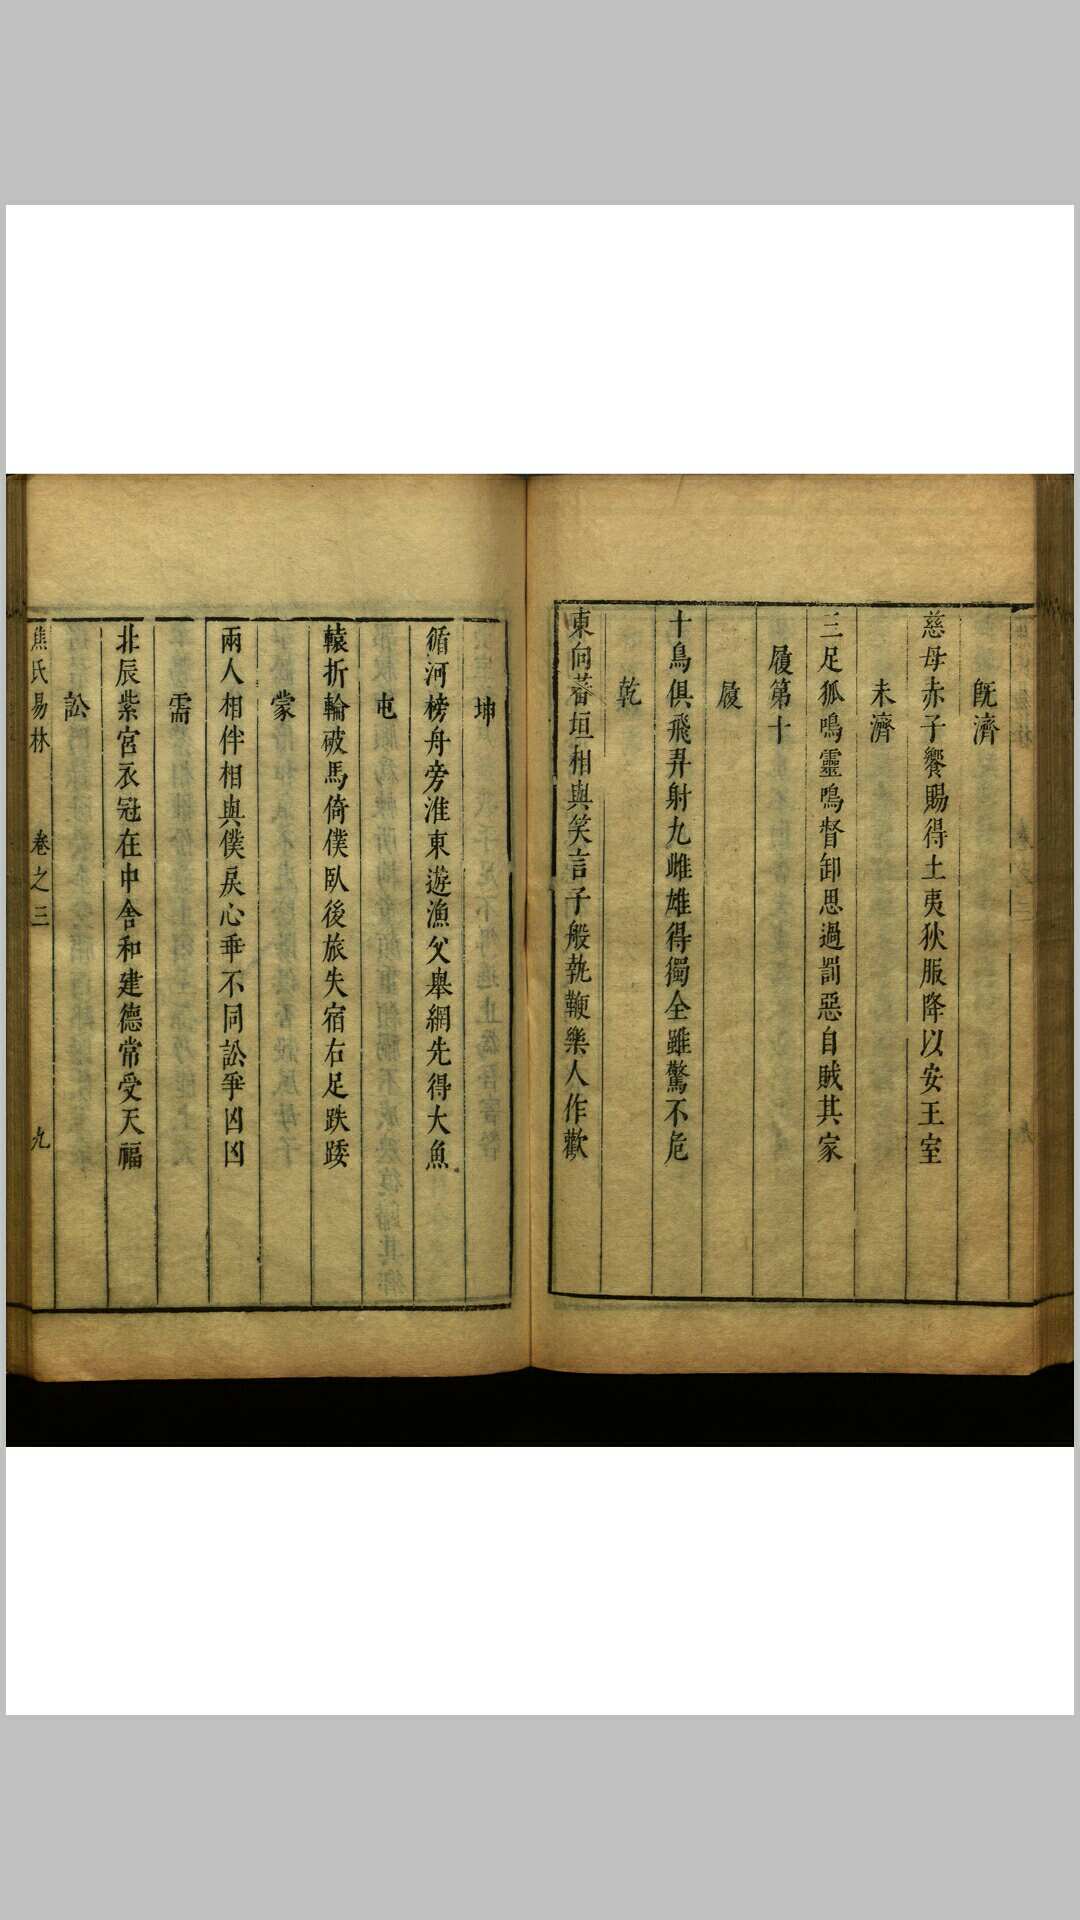 既濟
慈母赤子饗賜得士夷狄服降以安王室
未濟
三足狐鳴靈鳴督卸思過罰惡自賊其家
履第十
履
十鳥俱飛羿射九雌雄得獨全雖驚不危
乾
東向蕃垣相與笑言子般執鞭樂人作歡
坤
循河榜舟旁淮東遊漁父舉網先得大魚
屯
轅折輪破馬倚僕臥後旅失宿右足跌踒
蒙
兩人相伴相與僕戾心乖不同訟爭凶凶
需
北辰紫宮衣冠在中含和建德常受天福
訟
焦氏易林 卷之三 九